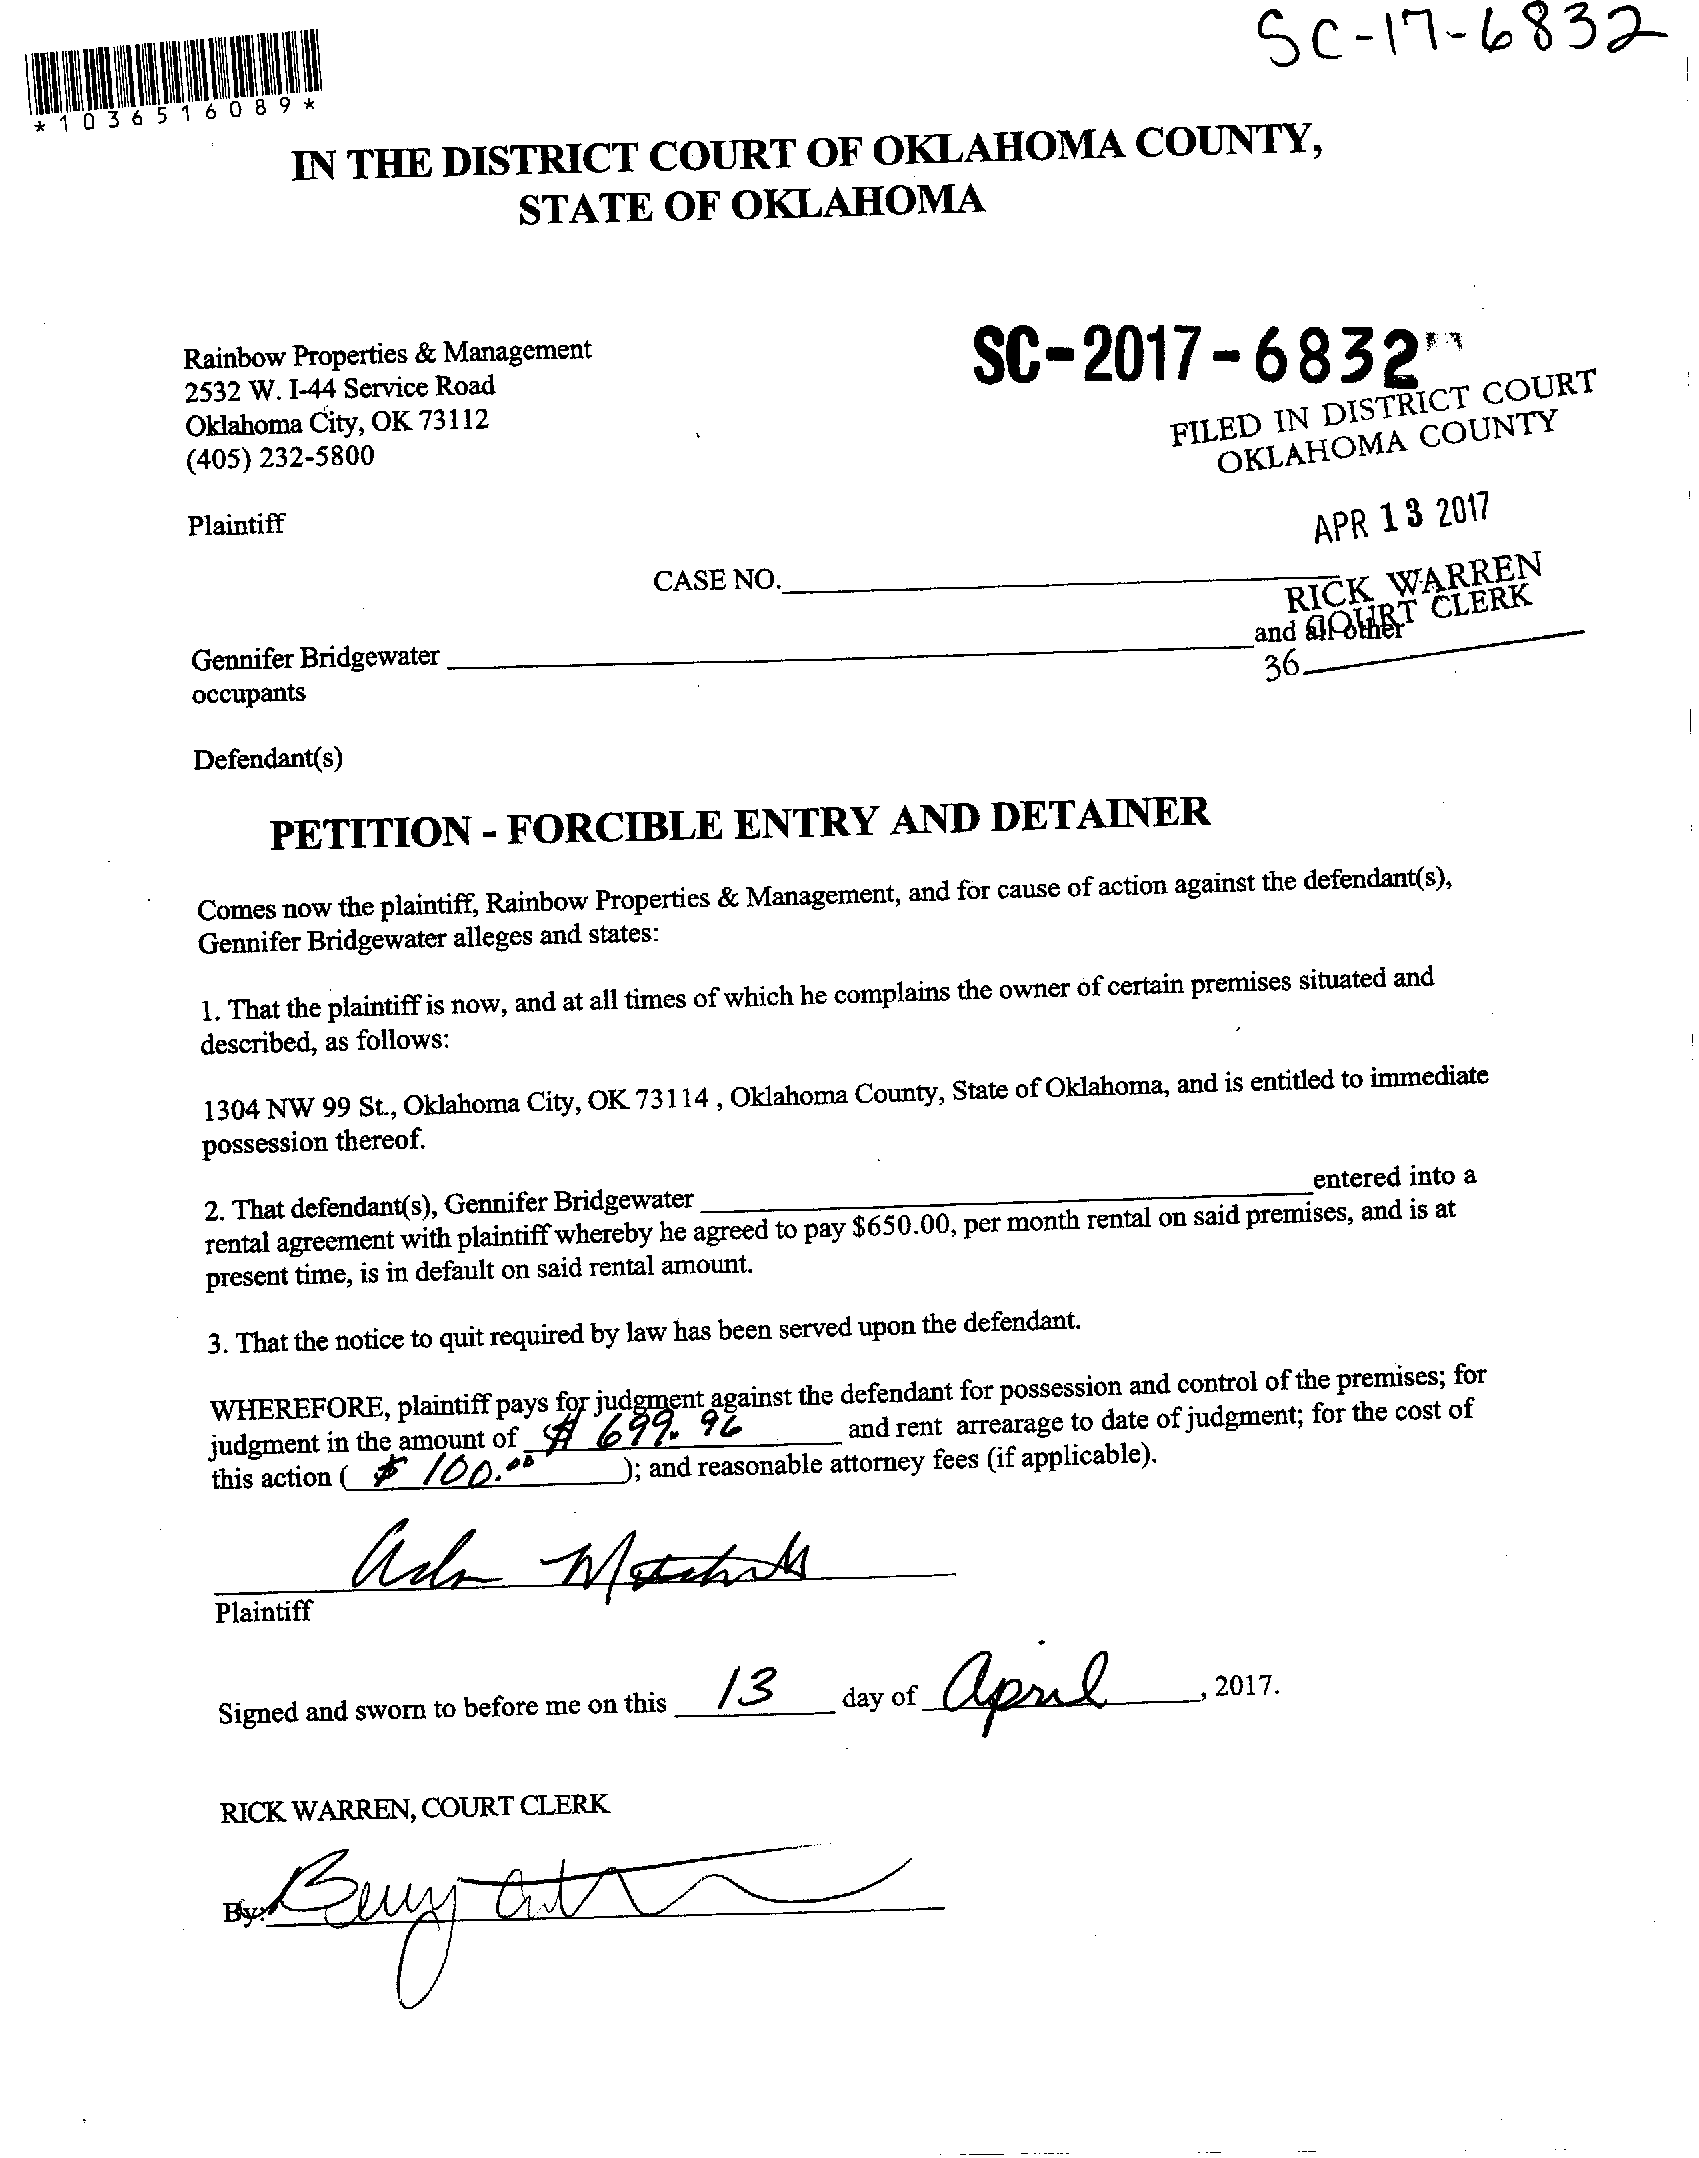 SC-17-6832
*1036516089*
IN THE DISTRICT COURT OF OKLAHOMA COUNTY,
STATE OF OKLAHOMA
Rainbow Properties & Management
2532 W. I-44 Service Road
Oklahoma City, OK 73112
(405) 232-5800
SC-2017-6832
FILED IN DISTRICT COURT
OKLAHOMA COUNTY
Plaintiff
APR 13 2017
CASE NO.
RICK WARREN
COURT CLERK
Gennifer Bridgewater and all other
36
occupants
Defendant(s)
PETITION - FORCIBLE ENTRY AND DETAINER
Comes now the plaintiff, Rainbow Properties & Management, and for cause of action against the defendant(s),
Gennifer Bridgewater alleges and states:
1. That the plaintiff is now, and at all times of which he complains the owner of certain premises situated and
described, as follows:
1304 NW 99 St., Oklahoma City, OK 73114 , Oklahoma County, State of Oklahoma, and is entitled to immediate
possession thereof.
2. That defendant(s), Gennifer Bridgewater entered into a
rental agreement with plaintiff whereby he agreed to pay $650.00, per month rental on said premises, and is at
present time, is in default on said rental amount.
3. That the notice to quit required by law has been served upon the defendant.
WHEREFORE, plaintiff pays for judgment against the defendant for possession and control of the premises; for
judgment in the amount of $ 699.96 and rent arrearage to date of judgment; for the cost of
this action ( $ 100.00 ); and reasonable attorney fees (if applicable).
Plaintiff
Signed and sworn to before me on this 13 day of April , 2017.
RICK WARREN, COURT CLERK
By: